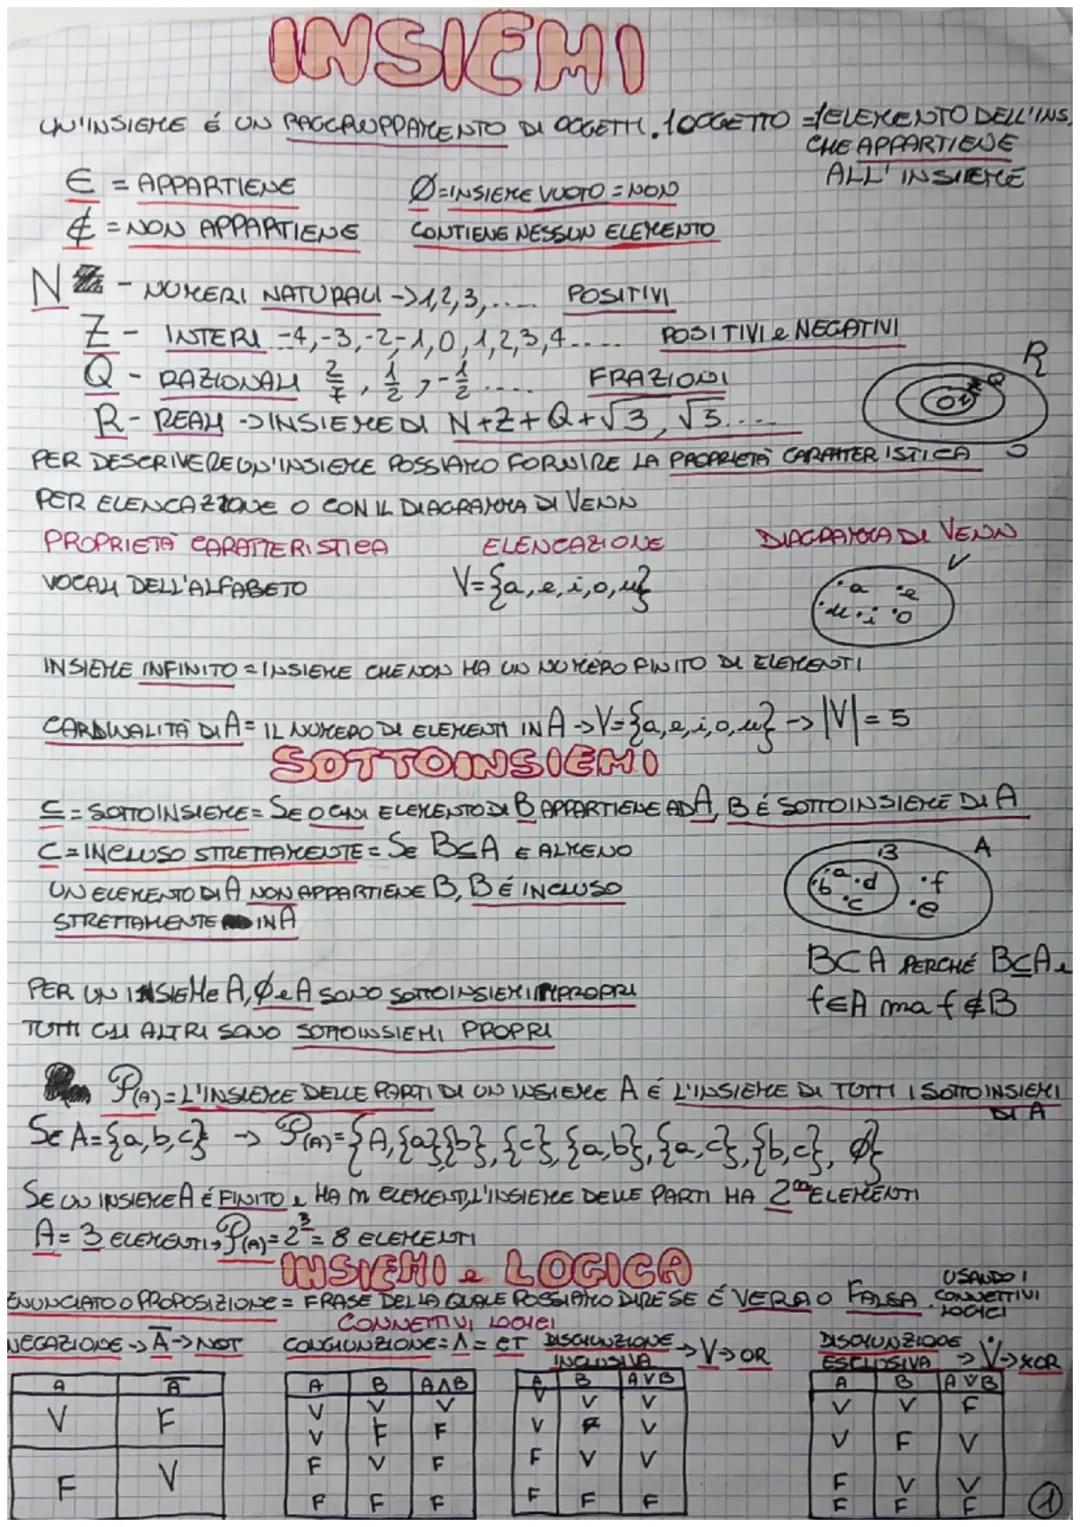 INSIEMI
UN'INSIEME É UN RAGGRUPPAMENTO DI OGGETTI. 1 OGGETTO = 1 ELEMENTO DELL'INS.
CHE APPARTIENE
ALL'INSIEME
∈ = APPARTIENE
∅ = INSIEME VUOTO = NON
∉ = NON APPARTIENE
CONTIENE NESSUN ELEMENTO
N - NUMERI NATURALI -> 1,2,3,.... POSITIVI
Z - INTERI -4,-3,-2,-1,0,1,2,3,4.... POSITIVI e NEGATIVI
Q - RAZIONALI 2/7, 1/2, -1/2 .... FRAZIONI
R
R - REALI -> INSIEME DI N+Z+Q+√3, √5....
PER DESCRIVERE UN'INSIEME POSSIAMO FORNIRE LA PROPRIETÀ CARATTERISTICA O
PER ELENCAZIONE O CON IL DIAGRAMMA DI VENN
PROPRIETÀ CARATTERISTICA ELENCAZIONE DIAGRAMMA DI VENN
VOCALI DELL'ALFABETO V={a,e,i,o,u}
V
.a .e
.u .i .o
INSIEME INFINITO = INSIEME CHE NON HA UN NUMERO FINITO DI ELEMENTI
CARDINALITÀ DI A = IL NUMERO DI ELEMENTI IN A -> V={a,e,i,o,u} -> |V| = 5
SOTTOINSIEMI
⊆ = SOTTOINSIEME = SE OGNI ELEMENTO DI B APPARTIENE AD A, B É SOTTOINSIEME DI A
⊂ = INCLUSO STRETTAMENTE = SE B⊆A E ALMENO
UN ELEMENTO DI A NON APPARTIENE B, B É INCLUSO
STRETTAMENTE IN A
B A
.a .b .d .c .f .e
B⊂A PERCHÉ B⊆A e
f∈A ma f∉B
PER UN INSIEME A, ∅ e A SONO SOTTOINSIEMI IMPROPRI
TUTTI GLI ALTRI SONO SOTTOINSIEMI PROPRI
P(A) = L'INSIEME DELLE PARTI DI UN INSIEME A É L'INSIEME DI TUTTI I SOTTOINSIEMI
DI A
SE A={a,b,c} -> P(A)={A,{a}{b},{c},{a,b},{a,c},{b,c}, ∅}
SE UN INSIEME A É FINITO e HA m ELEMENTI, L'INSIEME DELLE PARTI HA 2^m ELEMENTI
A = 3 ELEMENTI, P(A) = 2^3 = 8 ELEMENTI
INSIEMI e LOGICA
ENUNCIATO O PROPOSIZIONE = FRASE DELLA QUALE POSSIAMO DIRE SE É VERA O FALSA.
USANDO I
CONNETTIVI
LOGICI
CONNETTIVI LOGICI
NEGAZIONE -> A̅ -> NOT
CONGIUNZIONE = ∧ = ET
DISGIUNZIONE
INCLUSIVA -> V -> OR
DISGIUNZIONE
ESCLUSIVA -> V̇ -> XOR
A A̅
V F
F V
A B A∧B
V V V
V F F
F V F
F F F
A B A∨B
V V V
V F V
F V V
F F F
A B A V̇ B
V V F
V F V
F V V
F F F
1